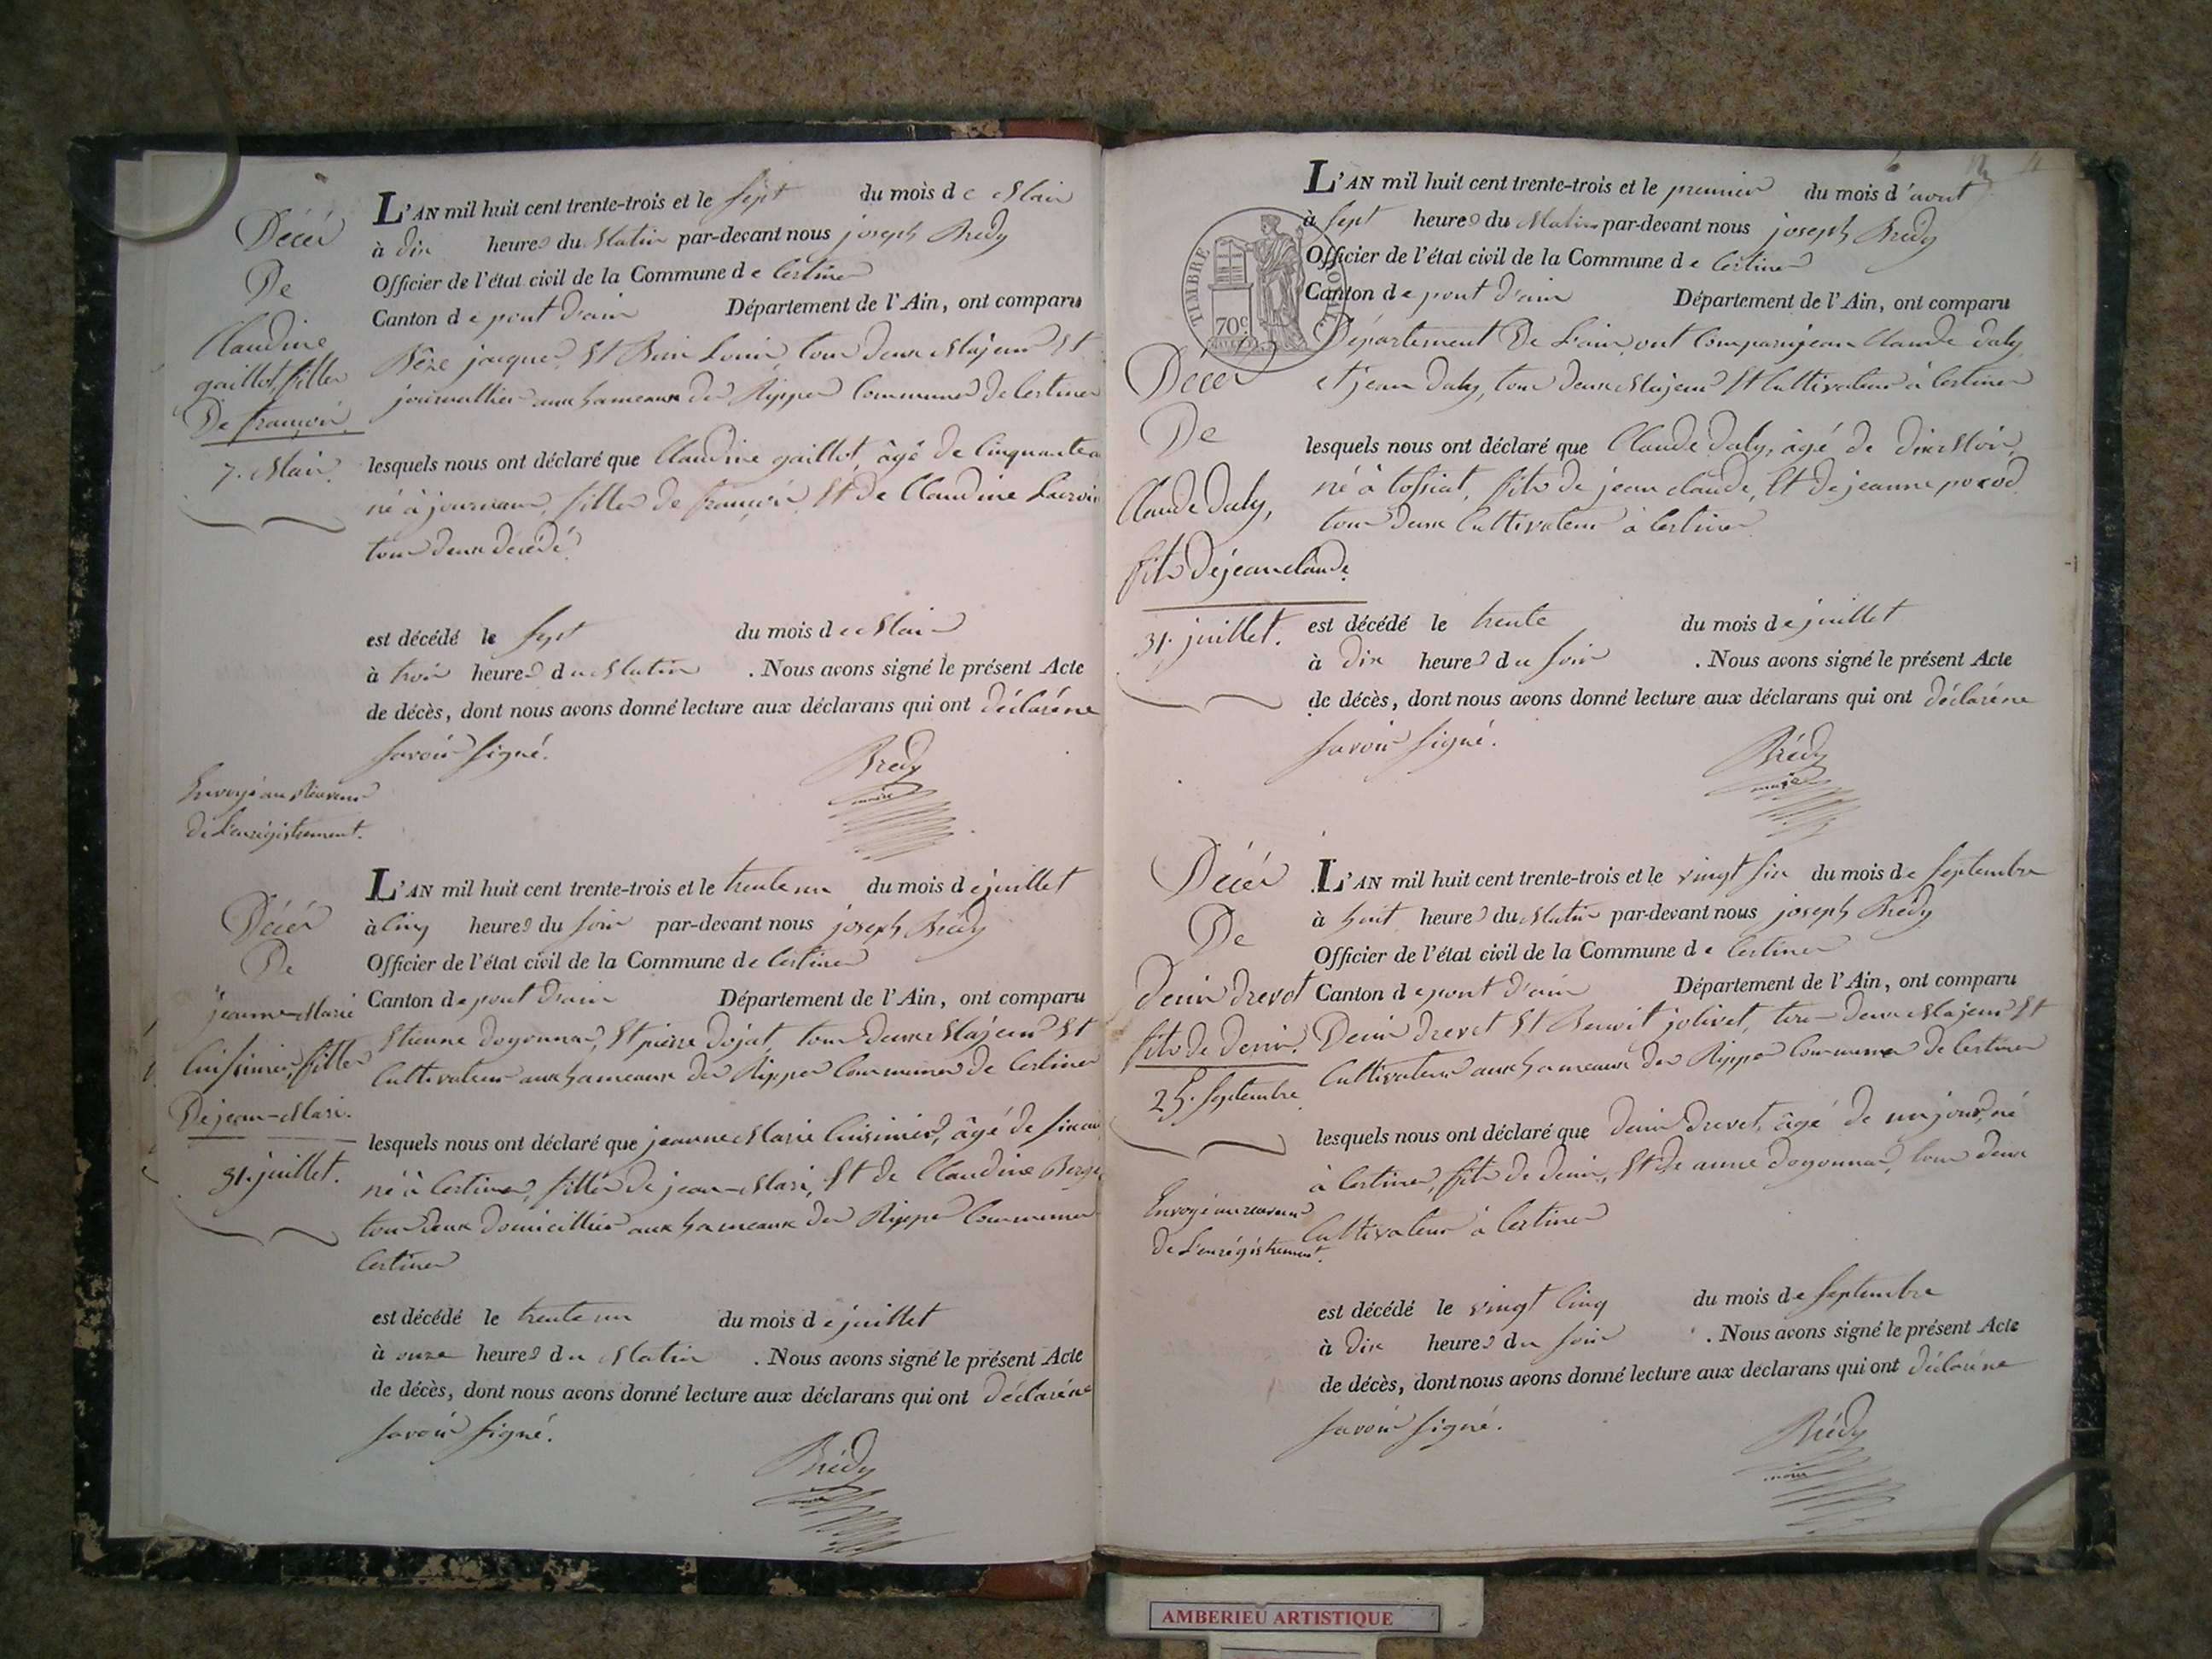 Décès
De
Claudine
gaillot, fille
De françois
7. Mai
L'AN mil huit cent trente-trois et le sept du mois de Mai
à dix heures du Matin par-devant nous joseph Bredy
Officier de l'état civil de la Commune de Certines
Canton de pont d'ain Département de l'Ain, ont comparu
jacques et Louis tous deux Majeurs et
journallier aux hameaux des Rippes Commune de Certines
lesquels nous ont déclaré que Claudine gaillot, âgé de Cinquante
né à journans, fille de françois, et de Claudine Lacroix
tous deux décédé
est décédé le sept du mois de Mai
à trois heures du Matin . Nous avons signé le présent Acte
de décès, dont nous avons donné lecture aux déclarans qui ont déclaré ne
savoir signé.
Bredy
maire
Envoyé au
de L'enrégistrement.
Décès
De
jeanne-Marie
Cuisinier, fille
De jean-Marie.
31. juillet.
L'AN mil huit cent trente-trois et le trente un du mois de juillet
à Cinq heures du soir par-devant nous joseph Brédy
Officier de l'état civil de la Commune de Certines
Canton de pont d'ain Département de l'Ain, ont comparu
Etienne Doyonnas, et pierre Dojat, tous deux Majeurs et
Cultivateurs aux hameaux des Rippes Commune de Certines
lesquels nous ont déclaré que jeanne Marie Cuisinier, âgé de six
né à Certines, fille de jean-Marie, et de Claudine
tous deux domicilliés aux hameaux des Rippes Commune
Certines
est décédé le trente un du mois de juillet
à onze heures du Matin . Nous avons signé le présent Acte
de décès, dont nous avons donné lecture aux déclarans qui ont déclaré ne
savoir signé.
Brédy
maire
TIMBRE ROYAL
70c
Décès
De
Claude Daly,
fils De jean claude
31. juillet.
L'AN mil huit cent trente-trois et le premier du mois d'aout
à sept heures du Matin par-devant nous joseph Brédy
Officier de l'état civil de la Commune de Certines
Canton de pont d'ain Département de l'Ain, ont comparu
Département De L'ain, ont Comparu jean Claude daly
et jean daly, tous deux Majeurs et Cultivateurs à Certines
lesquels nous ont déclaré que Claude daly, âgé de dix Mois,
né à tossiat, fils de jean claude, et de jeanne
tous deux Cultivateurs à Certines
est décédé le trente du mois de juillet
à dix heures du soir . Nous avons signé le présent Acte
de décès, dont nous avons donné lecture aux déclarans qui ont déclaré ne
savoir signé.
Brédy
maire
Décès
De
Denis Drevet
fils de denis.
25. septembre
L'AN mil huit cent trente-trois et le vingt six du mois de septembre
à huit heures du Matin par-devant nous joseph Brédy
Officier de l'état civil de la Commune de Certines
Canton de pont d'ain Département de l'Ain, ont comparu
Denis drevet et Benoit jolivet, tous deux Majeurs et
Cultivateurs aux hameaux des Rippes Commune de Certines
lesquels nous ont déclaré que denis drevet, âgé de un jour, né
à Certines, fils de denis, et de anne doyonnas, tous deux
Cultivateurs à Certines
Envoyé au
de L'enrégistrement.
est décédé le vingt Cinq du mois de septembre
à dix heures du soir . Nous avons signé le présent Acte
de décès, dont nous avons donné lecture aux déclarans qui ont déclaré ne
savoir signé.
Brédy
maire
AMBERIEU ARTISTIQUE